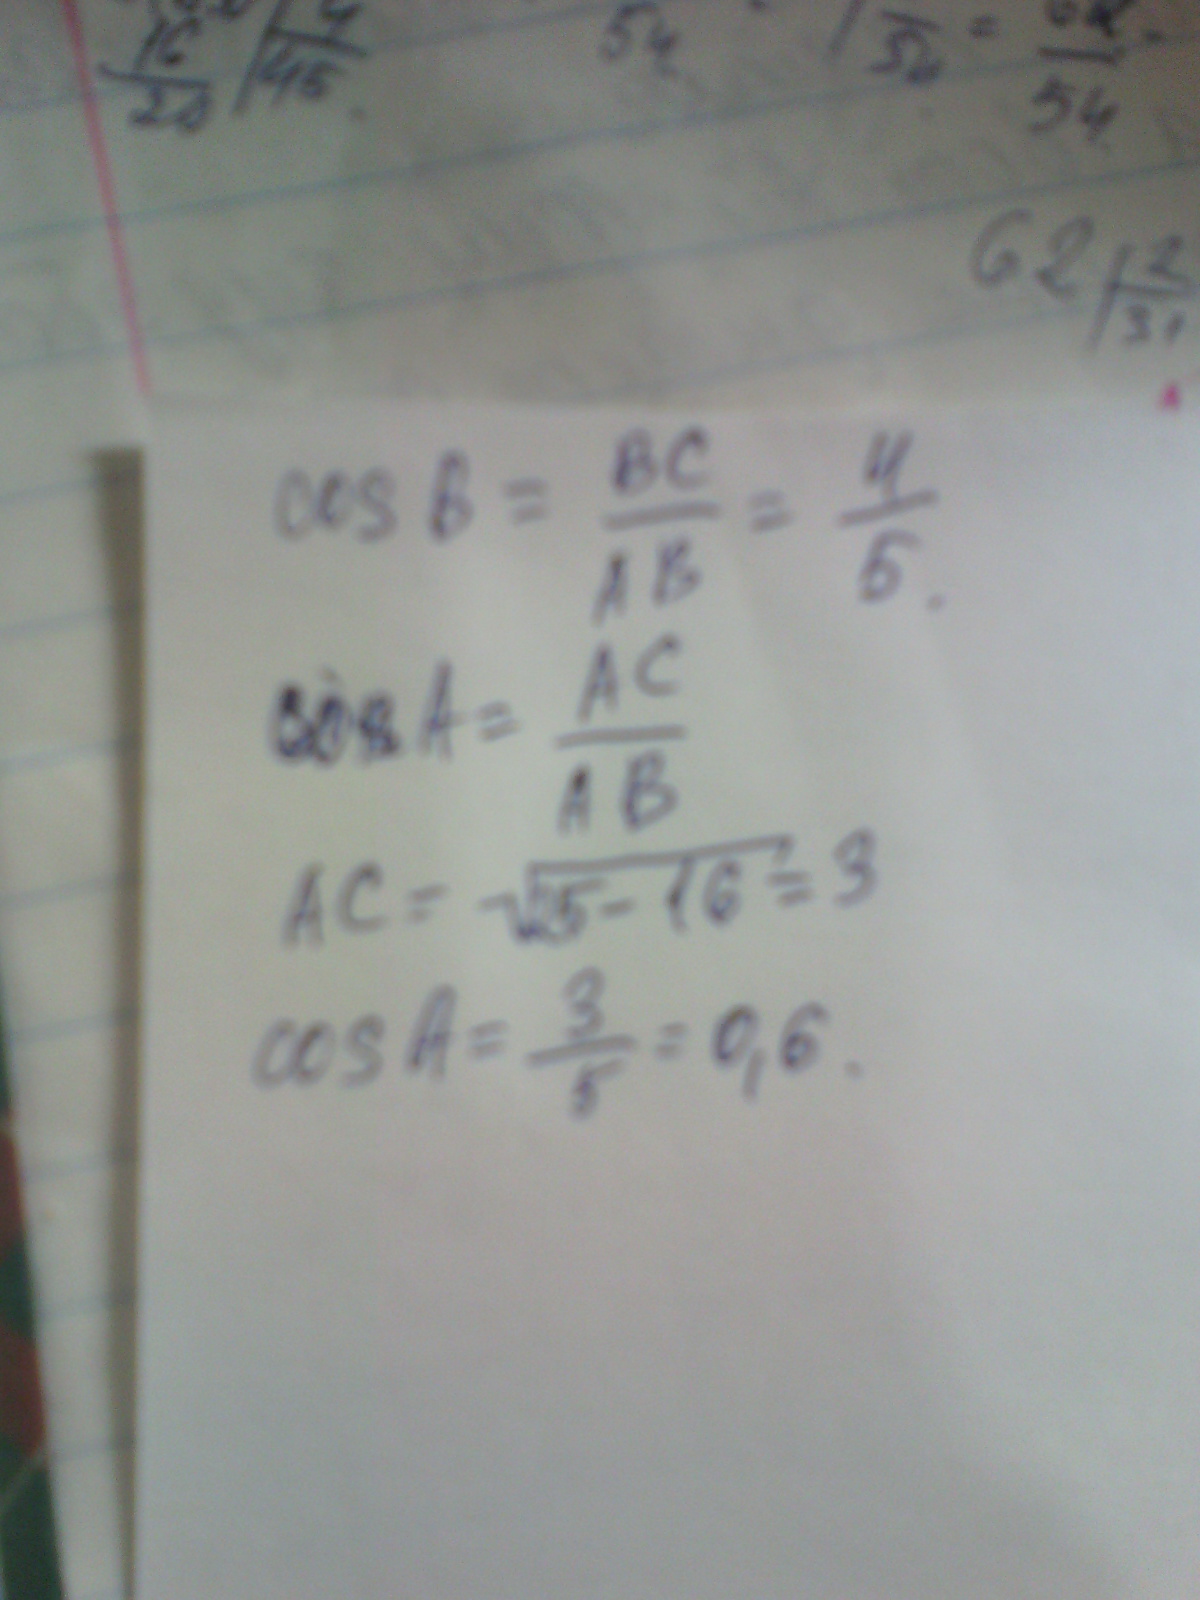 16/20 45
54 = 62/54
62 2
31
cos B = BC/AB = 4/5.
cos A = AC/AB
AC = √25-16 = 3
cos A = 3/5 = 0,6.